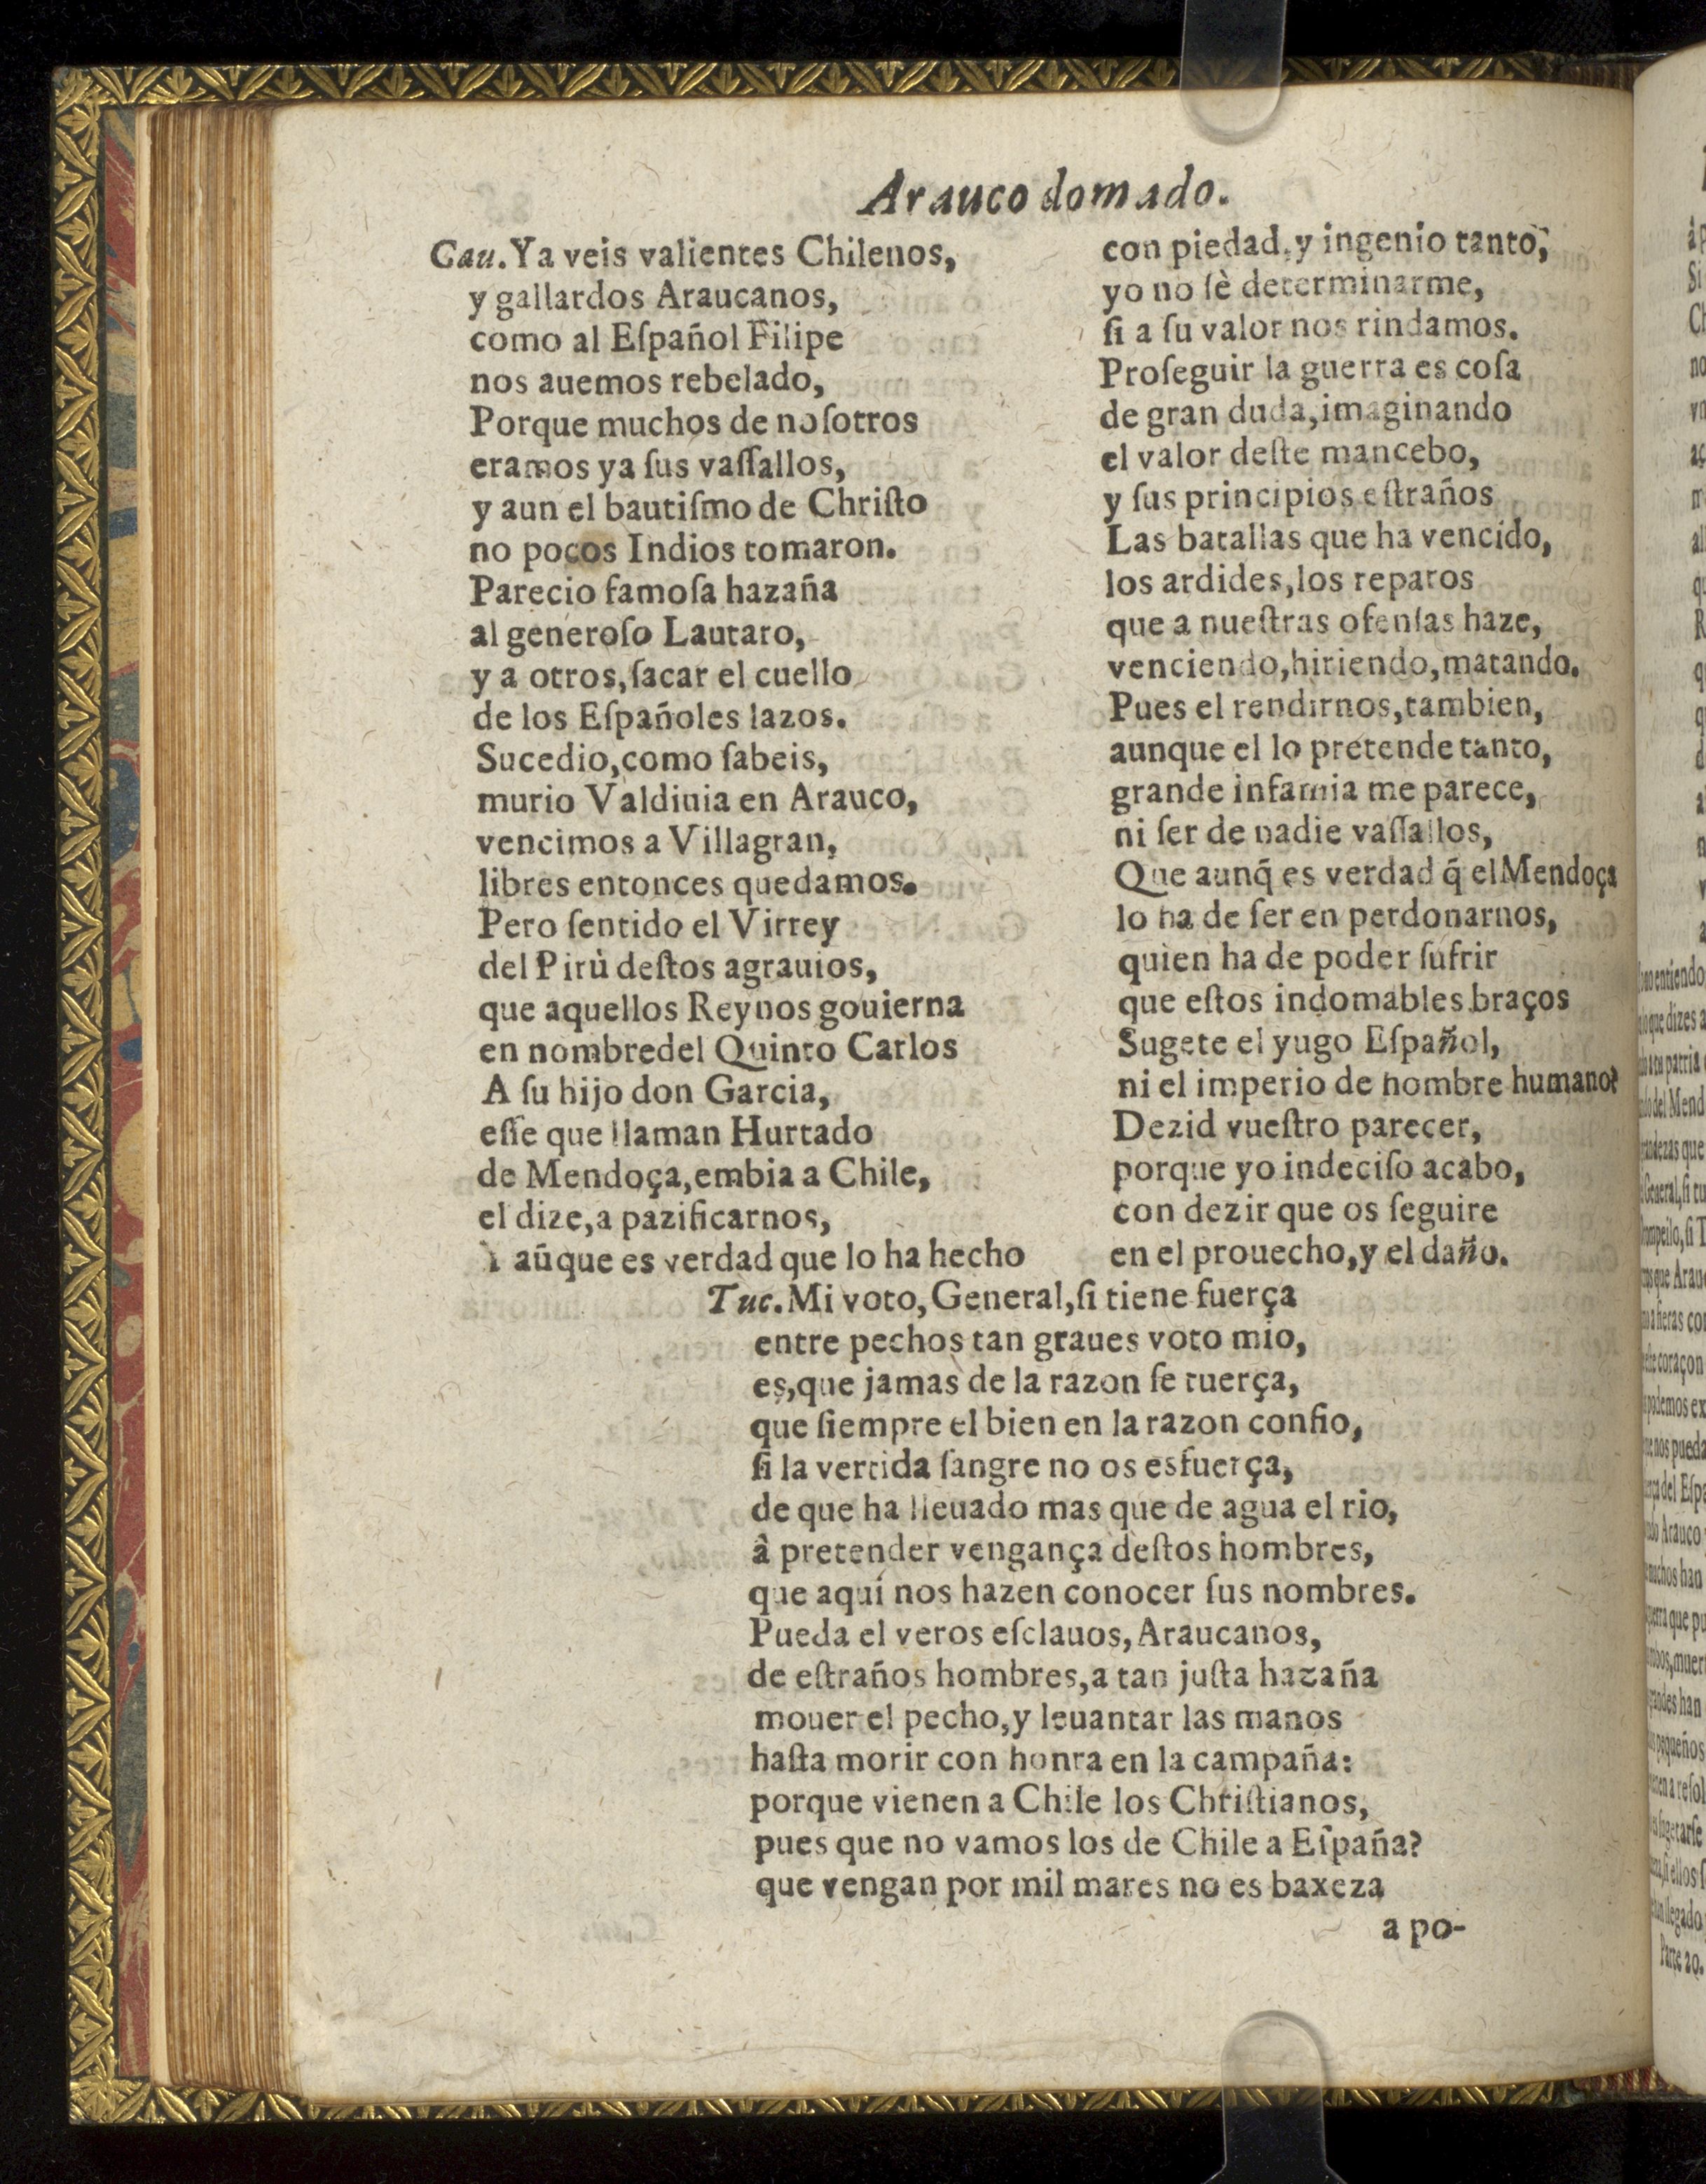 Arauco domado.
Cau. Ya veis valientes Chilenos,
y gallardos Araucanos,
como al Eſpañol Filipe
nos auemos rebelado,
Porque muchos de noſotros
eramos ya ſus vaſſallos,
y aun el bautiſmo de Chriſto
no pocos Indios tomaron.
Parecio famoſa hazaña
al generoſo Lautaro,
y a otros, ſacar el cuello
de los Eſpañoles lazos.
Sucedio, como ſabeis,
murio Valdiuia en Arauco,
vencimos a Villagran,
libres entonces quedamos.
Pero ſentido el Virrey
del Pirù deſtos agrauios,
que aquellos Reynos gouierna
en nombredel Quinto Carlos
A ſu hijo don Garcia,
eſſe que llaman Hurtado
de Mendoça, embia a Chile,
el dize, a pazificarnos,
Y aũque es verdad que lo ha hecho
con piedad, y ingenio tanto,
yo no ſè determinarme,
ſi a ſu valor nos rindamos.
Proſeguir la guerra es coſa
de gran duda, imaginando
el valor deſte mancebo,
y ſus principios eſtraños
Las batallas que ha vencido,
los ardides, los reparos
que a nueſtras ofenſas haze,
venciendo, hiriendo, matando.
Pues el rendirnos, tambien,
aunque el lo pretende tanto,
grande infamia me parece,
ni ſer de nadie vaſſallos,
Que aunq̃ es verdad q̃ el Mendoça
lo ha de ſer en perdonarnos,
quien ha de poder ſufrir
que eſtos indomables braços
Sugete el yugo Eſpañol,
ni el imperio de hombre humano?
Dezid vueſtro parecer,
porque yo indeciſo acabo,
con dezir que os ſeguire
en el prouecho, y el daño.
Tuc. Mi voto, General, ſi tiene fuerça
entre pechos tan graues voto mio,
es, que jamas de la razon ſe tuerça,
que ſiempre el bien en la razon confio,
ſi la vertida ſangre no os esfuerça,
de que ha lleuado mas que de agua el rio,
à pretender vengança deſtos hombres,
que aquí nos hazen conocer ſus nombres.
Pueda el veros eſclauos, Araucanos,
de eſtraños hombres, a tan juſta hazaña
mouer el pecho, y leuantar las manos
haſta morir con honra en la campaña:
porque vienen a Chile los Chriſtianos,
pues que no vamos los de Chile a Eſpaña?
que vengan por mil mares no es baxeza
a po-